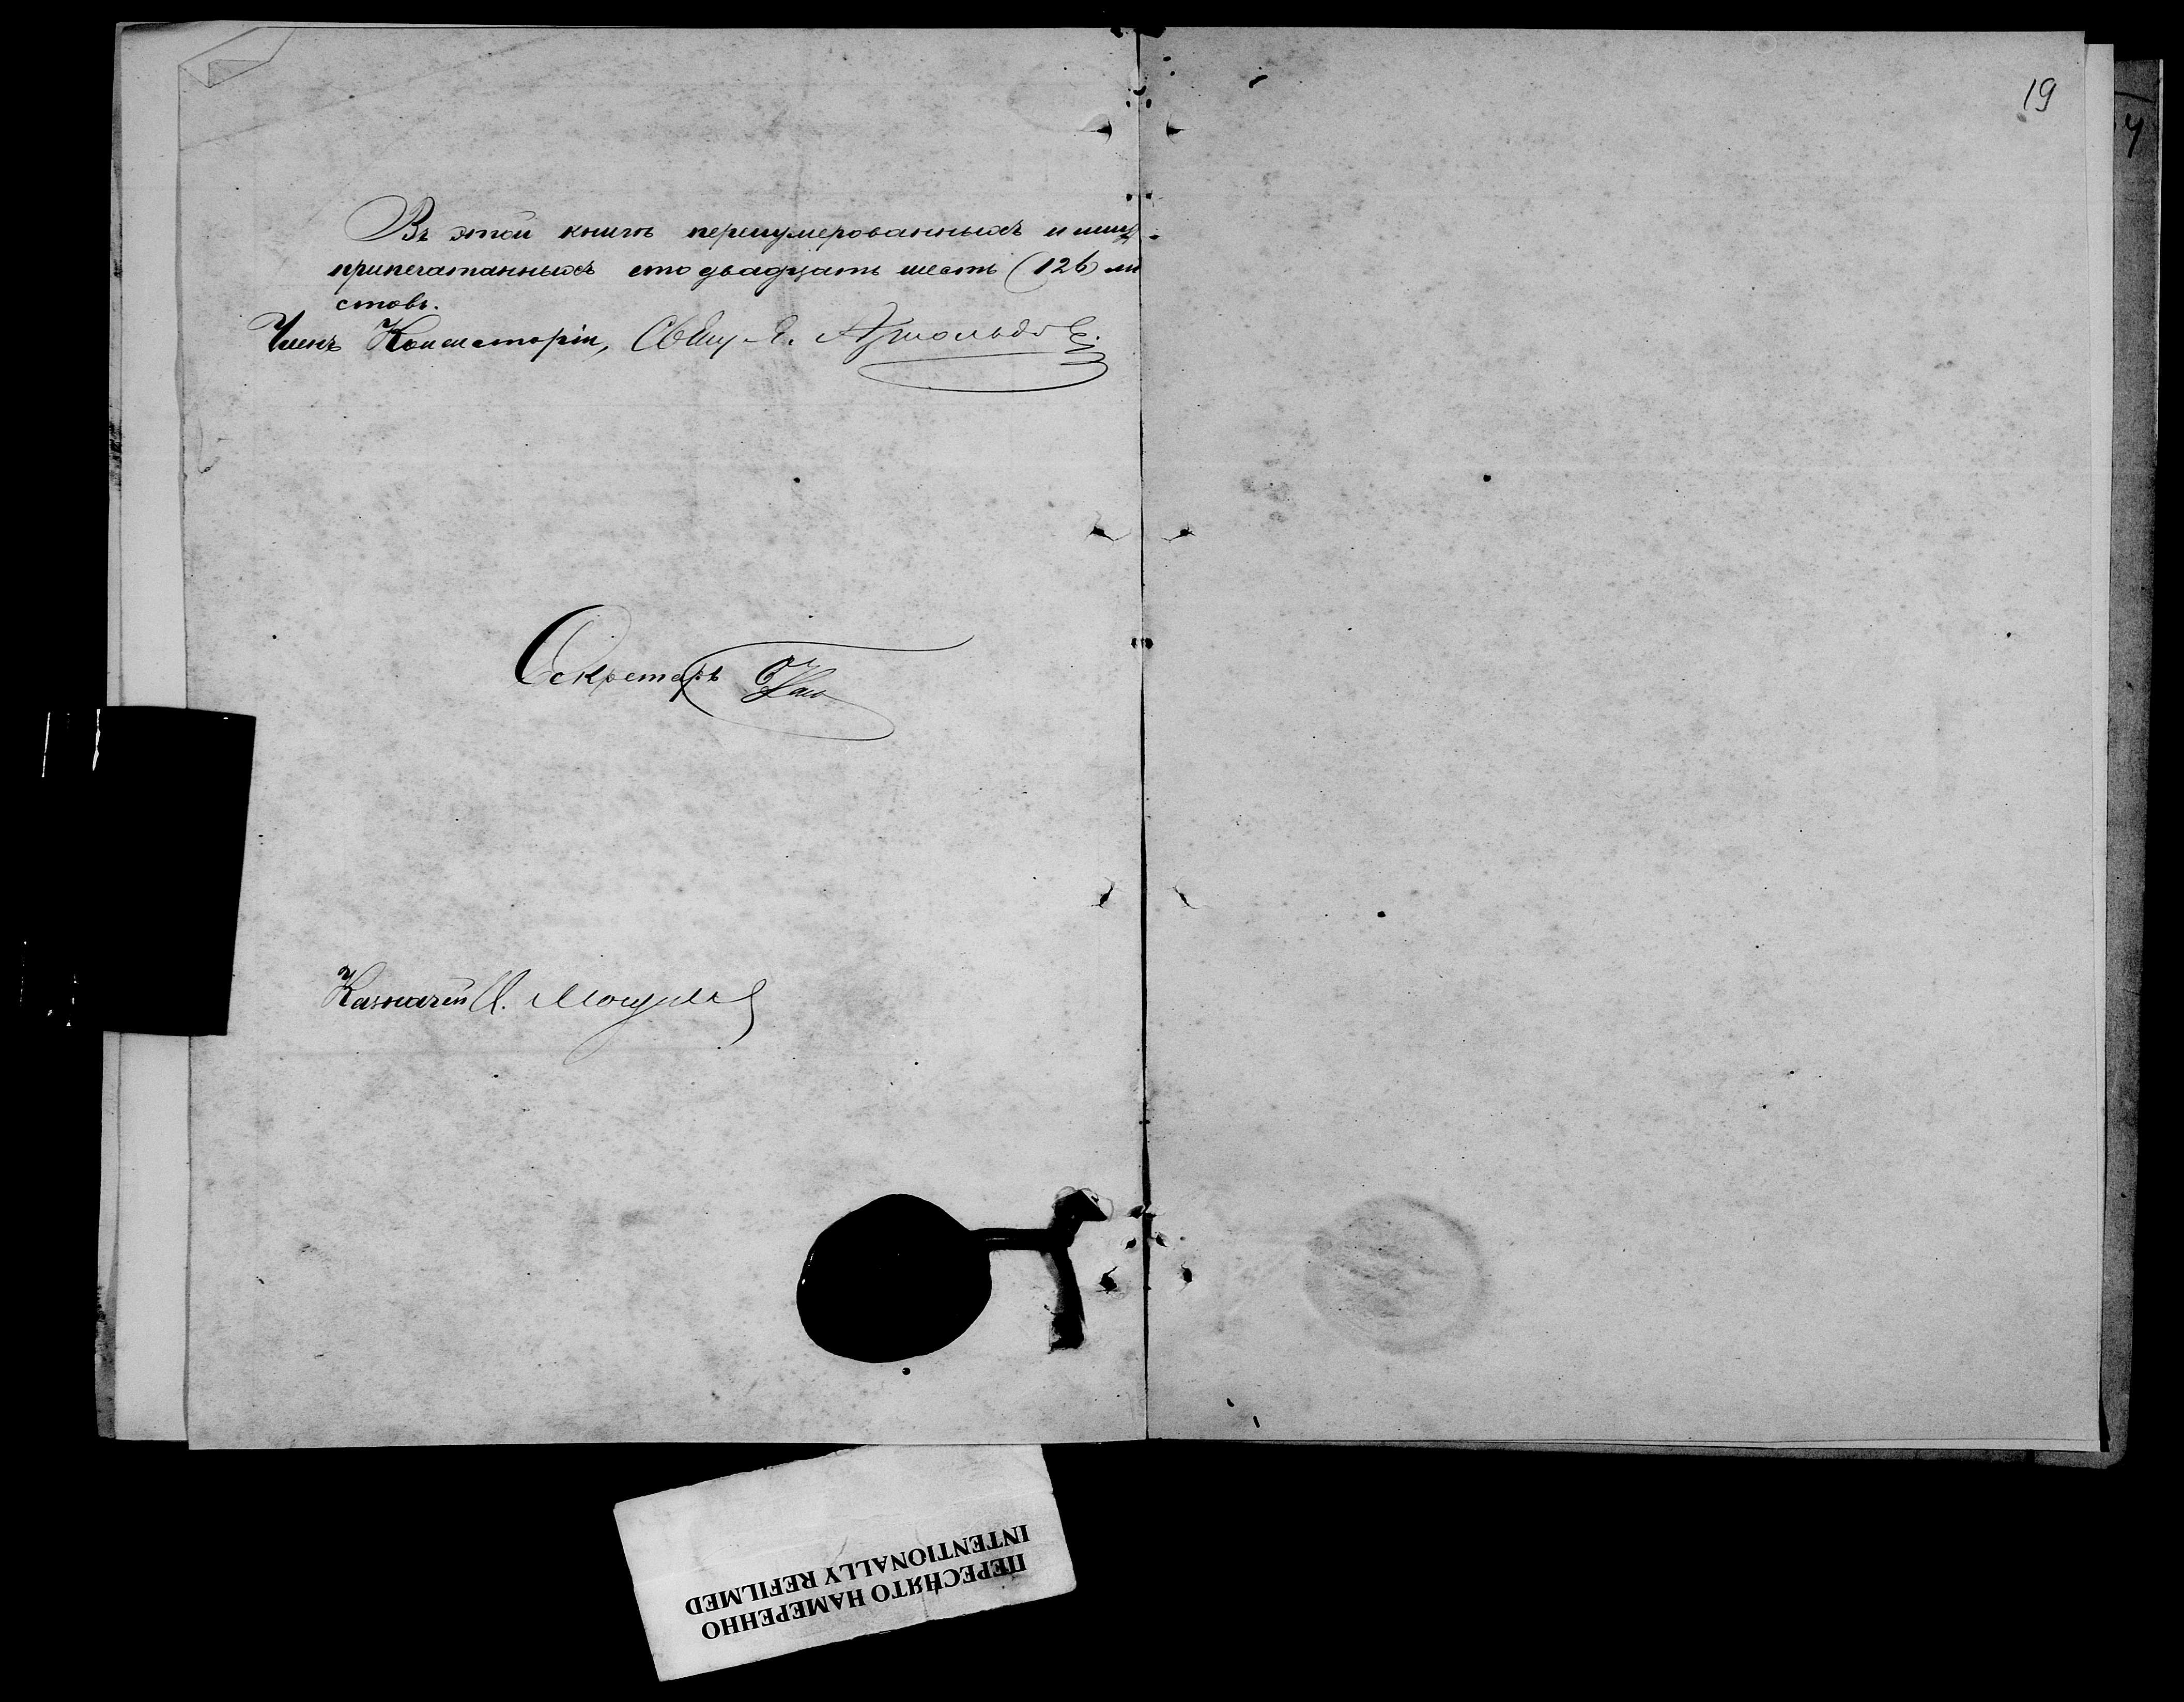 Въ этой книгѣ перенумерованныхъ и
припечатанныхъ сто двадцать шесть (126) ли
стовъ.
Членъ Консисторіи, Свящ.
Секретарь
Казначей
19
ПЕРЕСНЯТО НАМЕРЕННО
INTENTIONALLY REFILMED